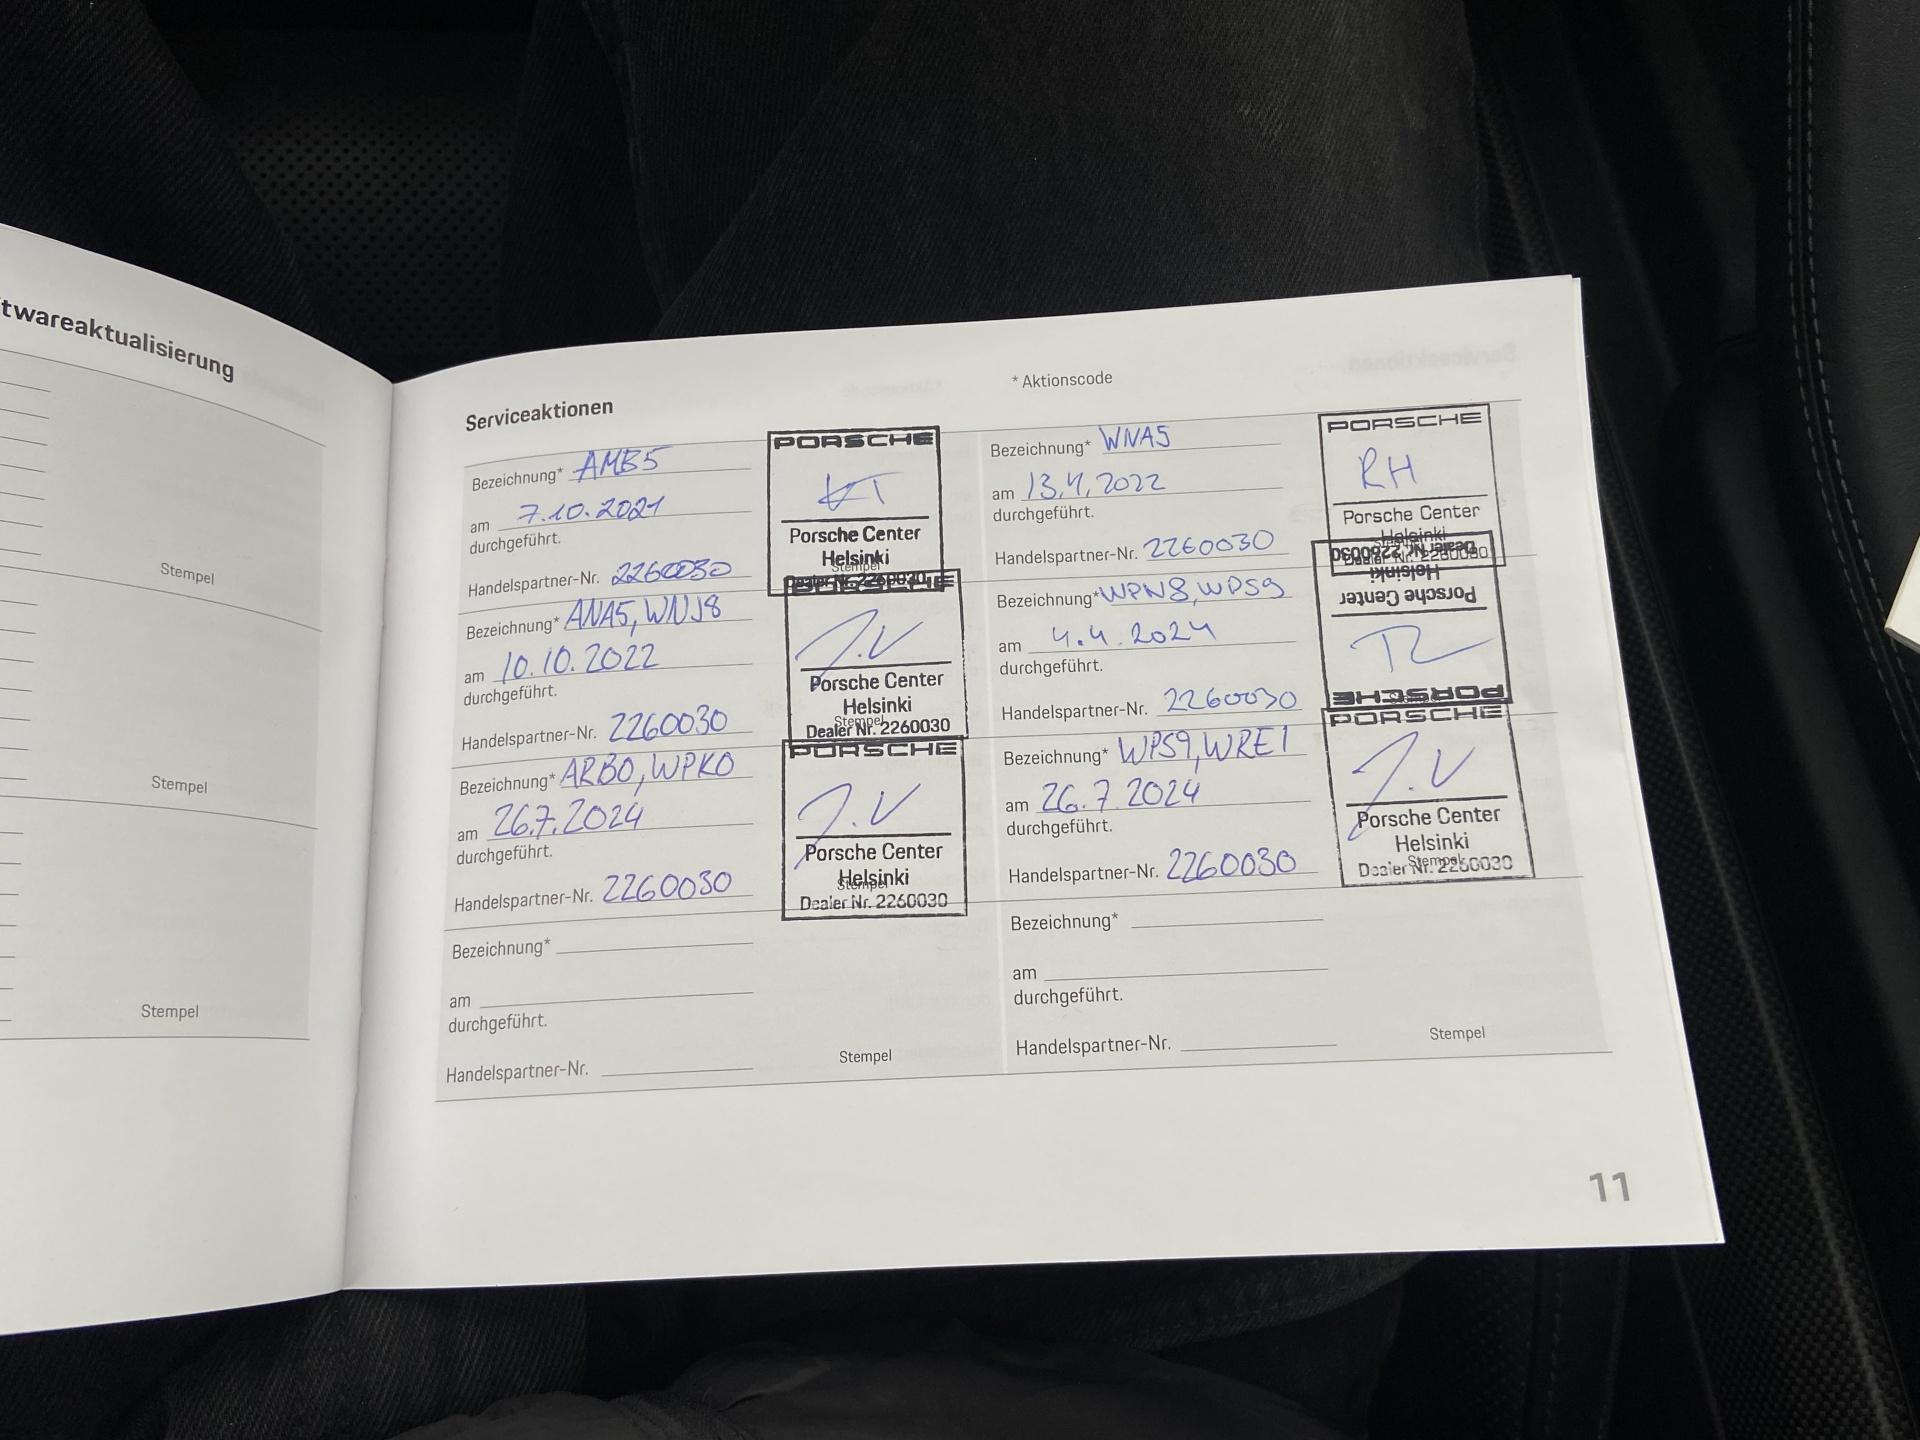 twareaktualisierung
Stempel
Stempel
Stempel
Serviceaktionen
* Aktionscode
Bezeichnung* AMB5
am 7.10.2021
durchgeführt.
Handelspartner-Nr. 2260030
PORSCHE
Porsche Center
Helsinki
Stempel
Dealer Nr. 2260030
Bezeichnung* WNA5
am 13.4.2022
durchgeführt.
Handelspartner-Nr. 2260030
PORSCHE
RH
Porsche Center
Helsinki
Bezeichnung* ANA5, WNJ8
am 10.10.2022
durchgeführt.
Handelspartner-Nr. 2260030
PORSCHE
J.V
Porsche Center
Helsinki
Stempel
Dealer Nr. 2260030
Bezeichnung* WPN8, WPS9
am 4.4.2024
durchgeführt.
Handelspartner-Nr. 2260030
PORSCHE
Porsche Center
Helsinki
Dealer Nr. 2260030
Bezeichnung* ARB0, WPK0
am 26.7.2024
durchgeführt.
Handelspartner-Nr. 2260030
PORSCHE
J.V
Porsche Center
Helsinki
Stempel
Dealer Nr. 2260030
Bezeichnung* WPS9, WRE1
am 26.7.2024
durchgeführt.
Handelspartner-Nr. 2260030
PORSCHE
J.V
Porsche Center
Helsinki
Stempel
Dealer Nr. 2260030
Bezeichnung*
am
durchgeführt.
Handelspartner-Nr.
Stempel
Bezeichnung*
am
durchgeführt.
Handelspartner-Nr.
Stempel
11